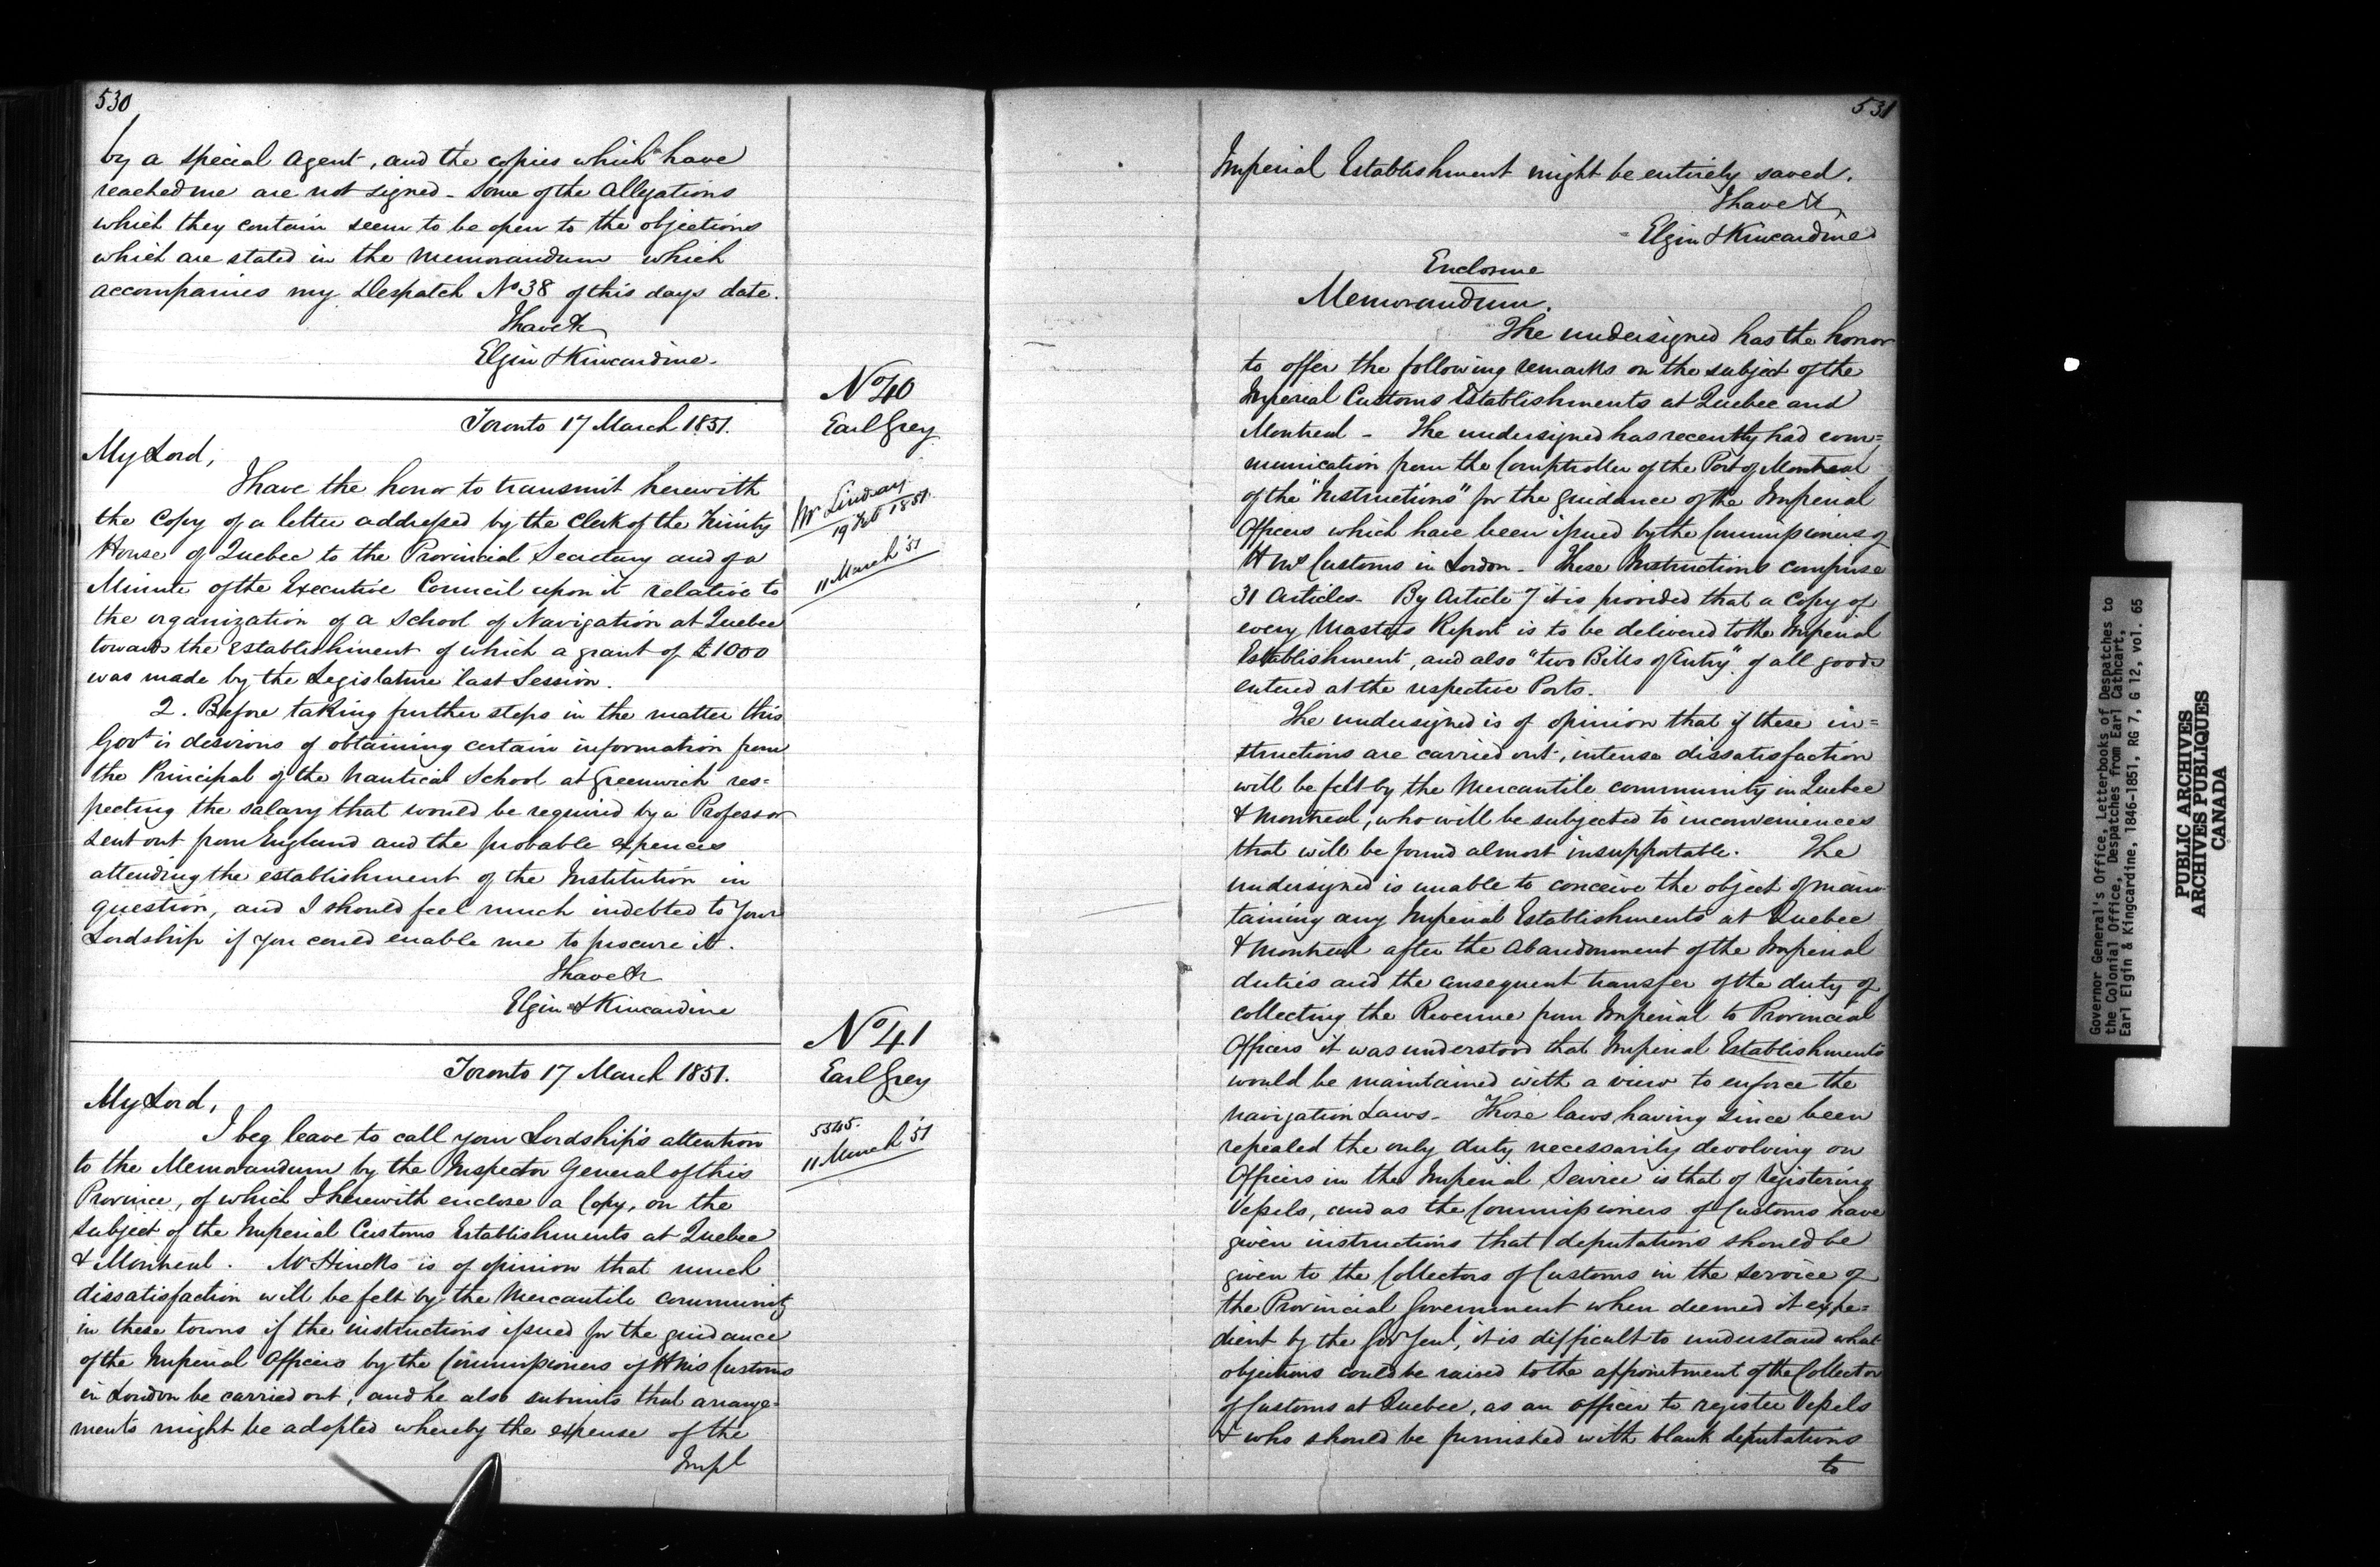 530
by a special Agent, and the copies which have
reached me are not signed - Some of the Allegations
which they contain seem to be open to the objections
which are stated in the Memorandum which
accompanies my Despatch No 38 of this days date.
I have &c
Elgin & Kincardine.
No 40
Earl Grey
Toronto 17 March 1851.
My Lord,
Mr Lindsay
19 Feb 1851.
11 March '51
I have the honor to transmit herewith
the Copy of a letter addressed by the Clerk of the Trinity
House of Quebec to the Provincial Secretary and of a
Minute of the Executive Council upon it relative to
the organization of a School of Navigation at Quebec
towards the establishment of which a grant of £1000
was made by the Legislature last Session.
2. Before taking further steps in the matter this
Govt is desirous of obtaining certain information from
the Principal of the Nautical School at Greenwich res=
pecting the salary that would be required by a Professor
sent out from England and the probable expences
attending the establishment of the Institution in
question, and I should feel much indebted to Your
Lordship if you could enable me to procure it.
I have &c
Elgin & Kincardine
No 41
Earl Grey
Toronto 17 March 1851.
My Lord,
5345.
11 March '51
I beg leave to call your Lordship's attention
to the Memorandum by the Inspector General of this
Province, of which I herewith enclose a Copy, on the
subject of the Imperial Customs Establishments at Quebec
& Montreal. Mr Hincks is of opinion that much
dissatisfaction will be felt by the Mercantile community
in these towns if the instructions issued for the guidance
of the Imperial Officers by the Commissioners of H M's Customs
in London be carried out, and he also submits that arrange=
ments might be adopted whereby the expense of the
Impl
531
Imperial Establishment might be entirely saved.
I have &c
Elgin & Kincardine
Enclosure
Memorandum.
The undersigned has the honor
to offer the following remarks on the subject of the
Imperial Customs Establishments at Quebec and
Montreal - The undersigned has recently had com=
munication from the Comptroller of the Port of Montreal
of the "Instructions" for the guidance of the Imperial
Officers which have been issued by the Commissioners of
H Ms Customs in London - These Instructions comprise
31 Articles - By Article 7 it is provided that a Copy of
every Masters Report is to be delivered to the Imperial
Establishment, and also "two Bills of Entry" of all goods
entered at the respective Ports.
The undersigned is of opinion that if these in=
structions are carried out, intense dissatisfaction
will be felt by the Mercantile community in Quebec
& Montreal, who will be subjected to inconveniences
that will be found almost insupportable. The
undersigned is unable to conceive the object of main
taining any Imperial Establishments at Quebec
& Montreal after the abandonment of the Imperial
duties and the consequent transfer of the duty of
collecting the Revenue from Imperial to Provincial
Officers it was understood that Imperial Establishments
would be maintained with a view to enforce the
Navigation Laws - Those laws having since been
repealed the only duty necessarily devolving on
Officers in the Imperial Service is that of registering
Vessels, and as the Commissioners of Customs have
given instructions that deputations should be
given to the Collectors of Customs in the service of
the Provincial Government when deemed it expe=
dient by the Gov Genl, it is difficult to understand what
objections could be raised to the appointment of the Collector
of Customs at Quebec, as an officer to register Vessels
& who should be furnished with blank deputations
to
Governor General's Office. Letterbooks of Despatches to
the Colonial Office, Despatches from Earl Cathcart,
Earl Elgin & Kingcardine, 1846-1851, RG 7, G 12, vol. 65
PUBLIC ARCHIVES
ARCHIVES PUBLIQUES
CANADA